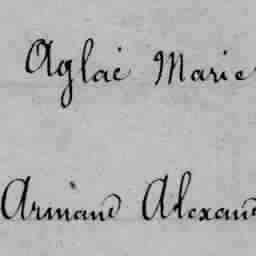 Aglaé Marie
Armand Alexand